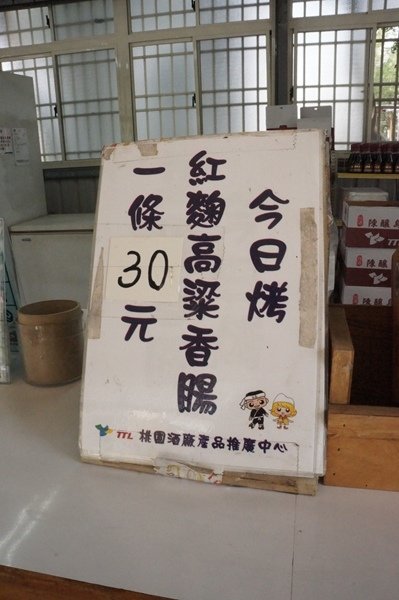 今日烤
紅麴高粱香腸
一條30元
TTL 桃園酒廠產品推廣中心
陳醸